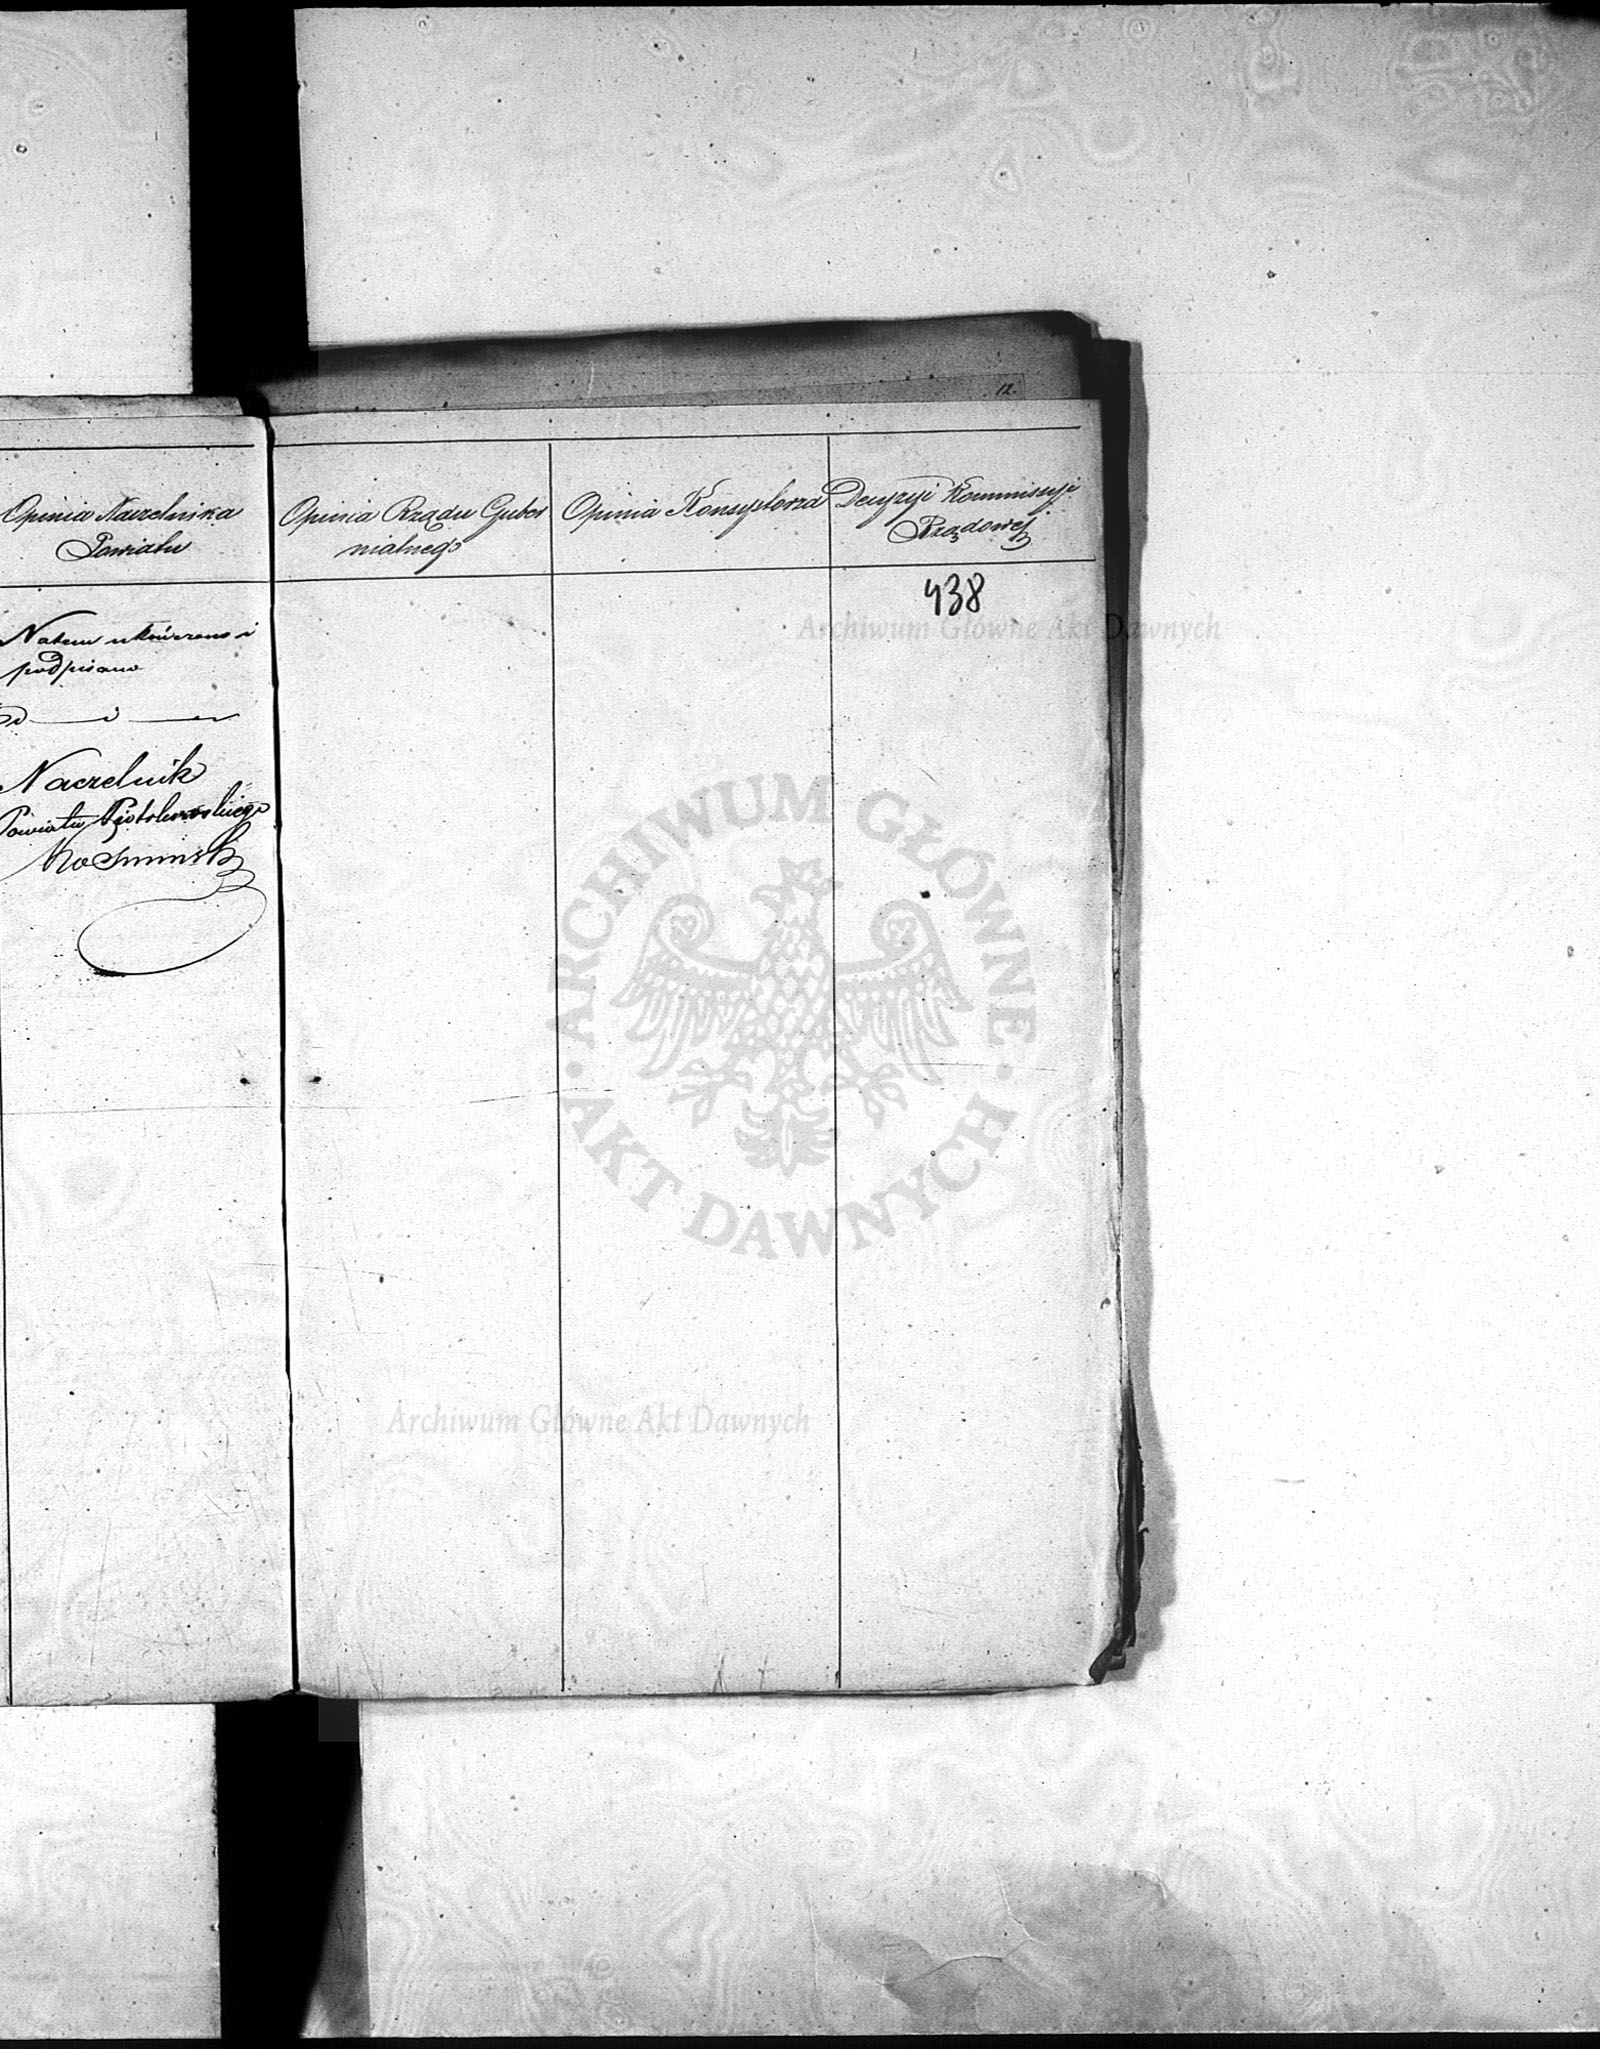 12.
Opinia Naczelnika
Powiatu
Opinia Rządu Guber
nialnego
Opinia Konsystorza
Decyzyi Kommissyi
Rządowej
438
Na tem ukończono i
podpisano
Naczelnik
Powiatu
Archiwum Główne Akt Dawnych
ARCHIWUM GŁÓWNE
AKT DAWNYCH
Archiwum Główne Akt Dawnych